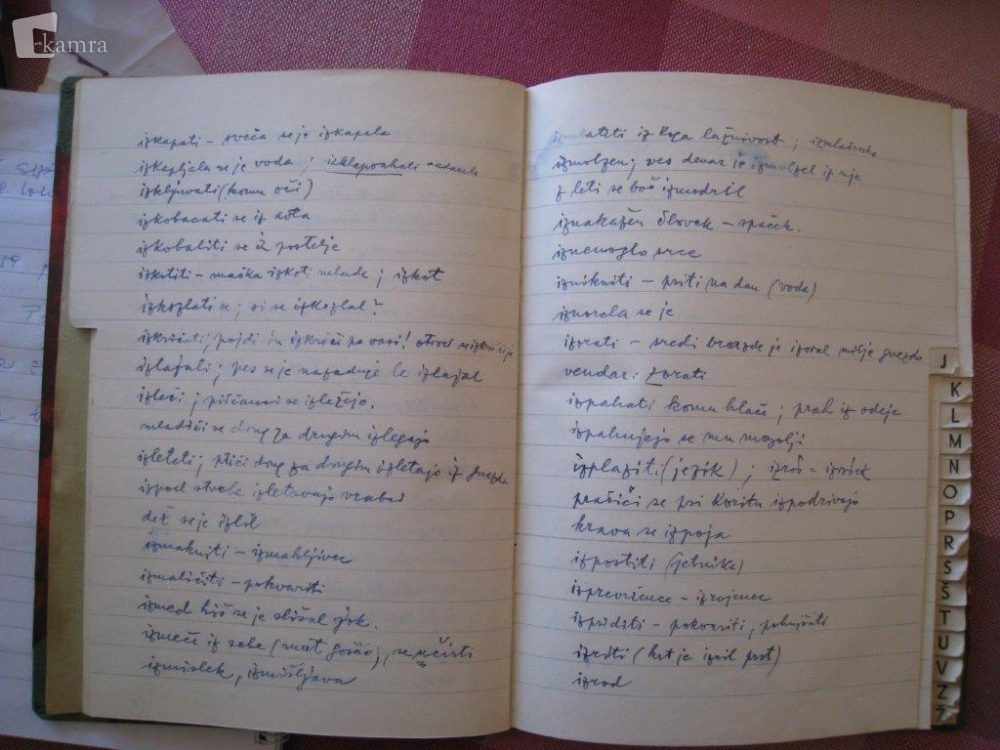 kamra
izkapati - sveča se je izkapala
izkapljala se je voda; izklaponhati
izkljuvati (komu oči)
izkobacati se iz avta
izkobaliti se iz postelje
izkotiti - mačka izkoti mlade; izkot
izkozlati se; si se izkozlal?
izkričati; pojdi in izkriči po vasi! otroci
izlajati; pes se je napaduje le izlajal
izleči; piščanci se izležejo.
mladiči se drug za drugim izlegajo
izleteti; ptiči drug za drugim izletajo iz gnezda
izpod strehe izletavajo vrabci
dež se je izlil
izmakniti - izmakljivec
izmaličiti - pokvariti
izmed hiš se je slišal jok.
izmeče iz sebe (), se učisti
izmislek, izmišljava
izmlatiti iz koga lažnivost;
izmolzen; ves denar je izmolzel iz nje
z leti se boš izmodril
iznakažen človek - spaček.
iznemoglo srce
iznikniti - priti na dan (voda)
iznorela se je
izorati - sredi brazde je izoral mišje gnezdo
vendar: zorati
izpahati komu hlače; prah iz odeje
izpahujejo se mu mozolji
izplaziti (jezik);
prašiči se pri koritu izpodrivajo
krava se izpoja
izpostiti (jetnika)
- izrojenec
izpriditi - pokvariti, pohujšati
izriti (krt je izril prst)
izrod
J
K
L
M
N
O
P
R
S
Š
T
U
V
Z
Ž